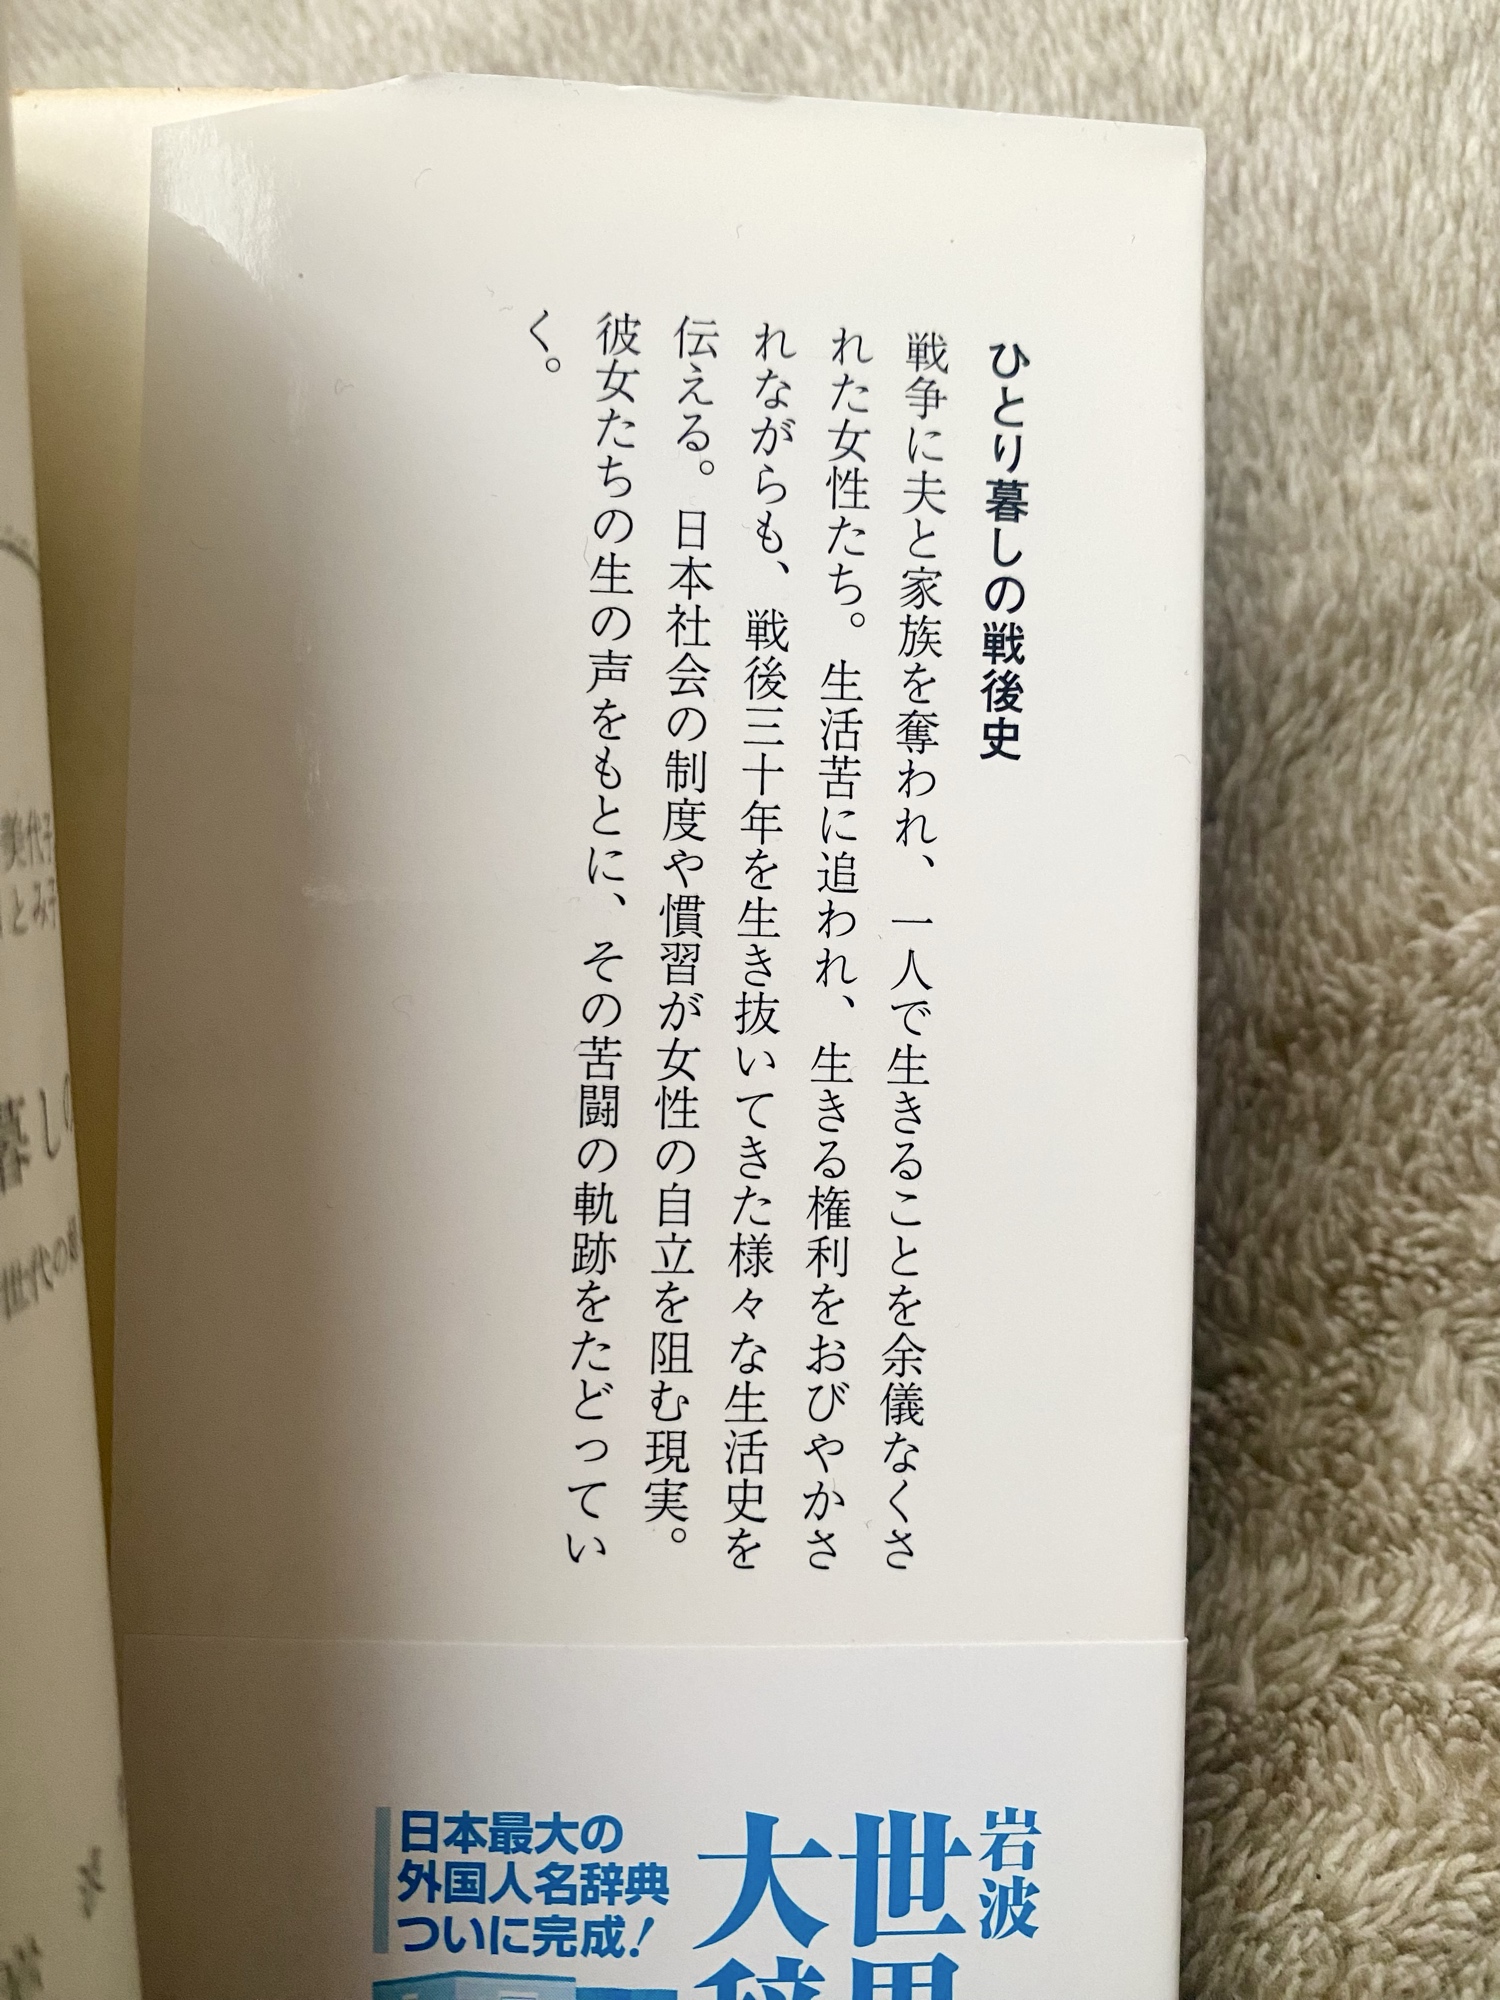 ひとり暮しの戦後史
戦争に夫と家族を奪われ、一人で生きることを余儀なくさ
れた女性たち。生活苦に追われ、生きる権利をおびやかさ
れながらも、戦後三十年を生き抜いてきた様々な生活史を
伝える。日本社会の制度や慣習が女性の自立を阻む現実。
彼女たちの生の声をもとに、その苦闘の軌跡をたどってい
く。
岩波
世
大
日本最大の
外国人名辞典
ついに完成!
美代子
とみ子
暮しの
世代の